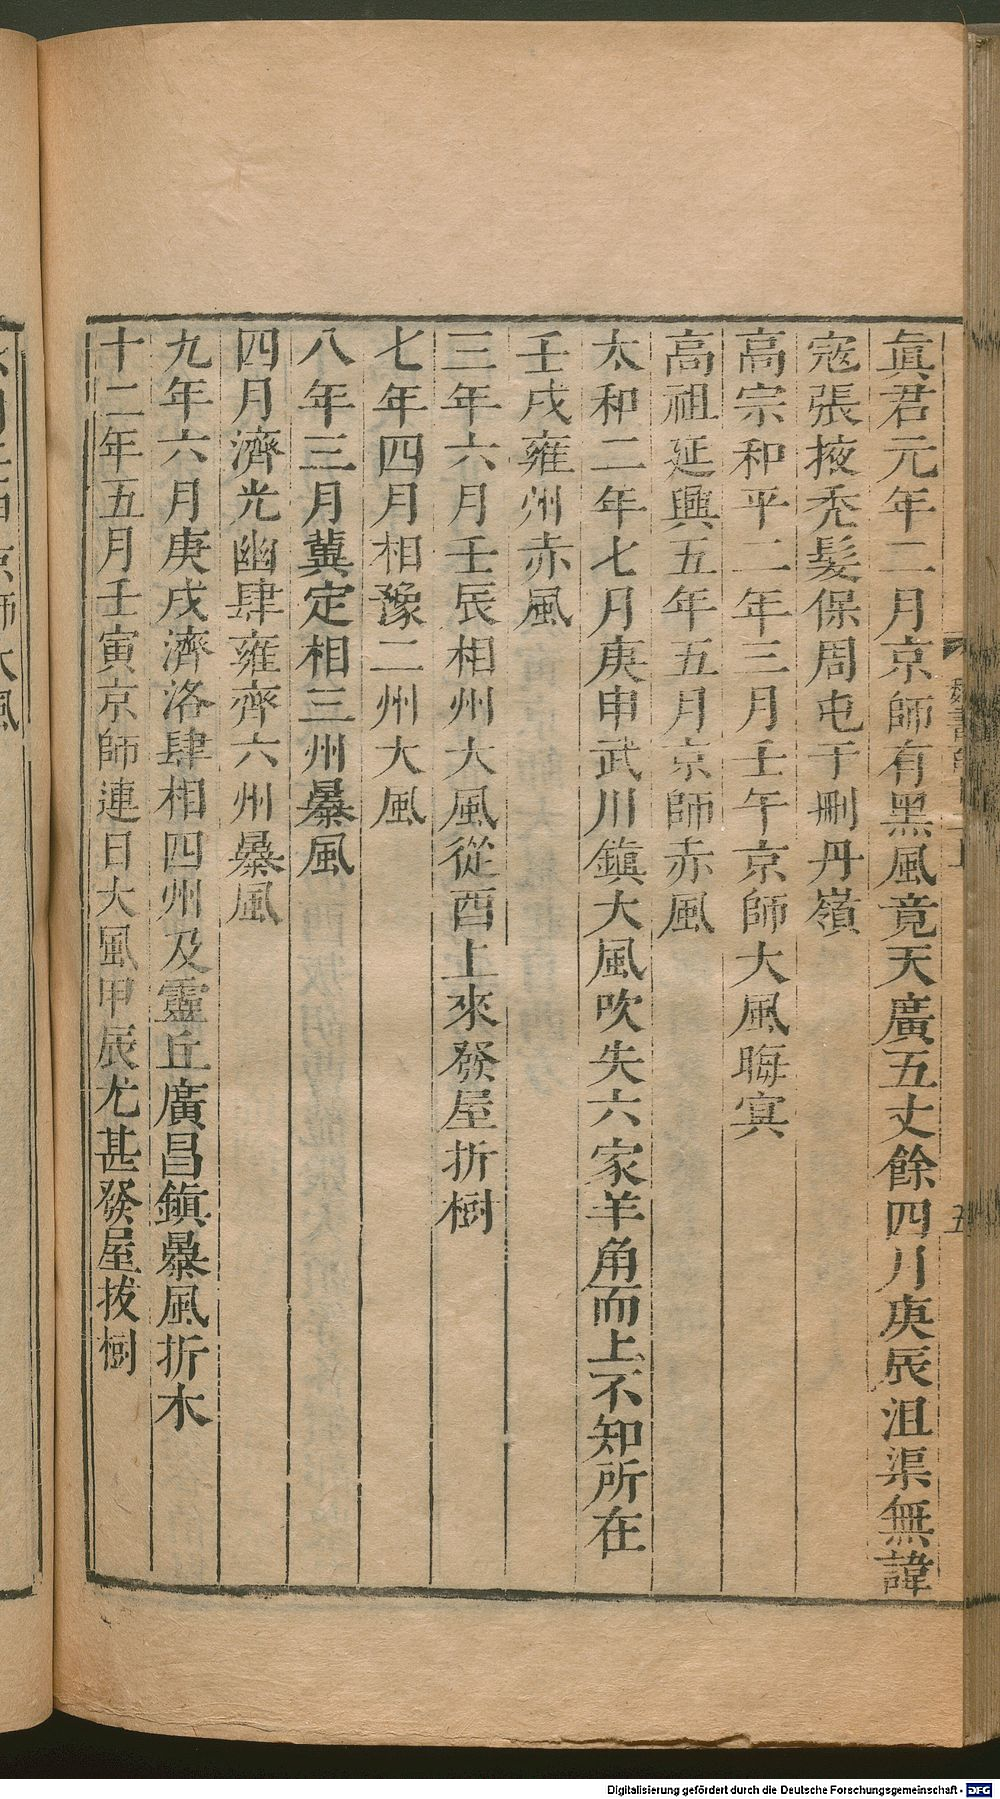 眞君元年二月京師有黑風竟天廣五丈餘四月庚辰沮渠無諱
寇張掖禿髮保周屯于刪丹嶺
高宗和平二年三月壬午京師大風晦冥
高祖延興五年五月京師赤風
太和二年七月庚申武川鎮大風吹失六家羊角而上不知所在
壬戌雍州赤風
三年六月壬辰相州大風從酉上來發屋折樹
七年四月相豫二州大風
八年三月冀定相三州暴風
四月濟光幽肆雍齊六州暴風
九年六月庚戌濟洛肆相四州及靈丘廣昌鎮暴風折木
十二年五月壬寅京師連日大風甲辰尤甚發屋拔樹
京師大風
Digitalisierung gefördert durch die Deutsche Forschungsgemeinschaft - DFG